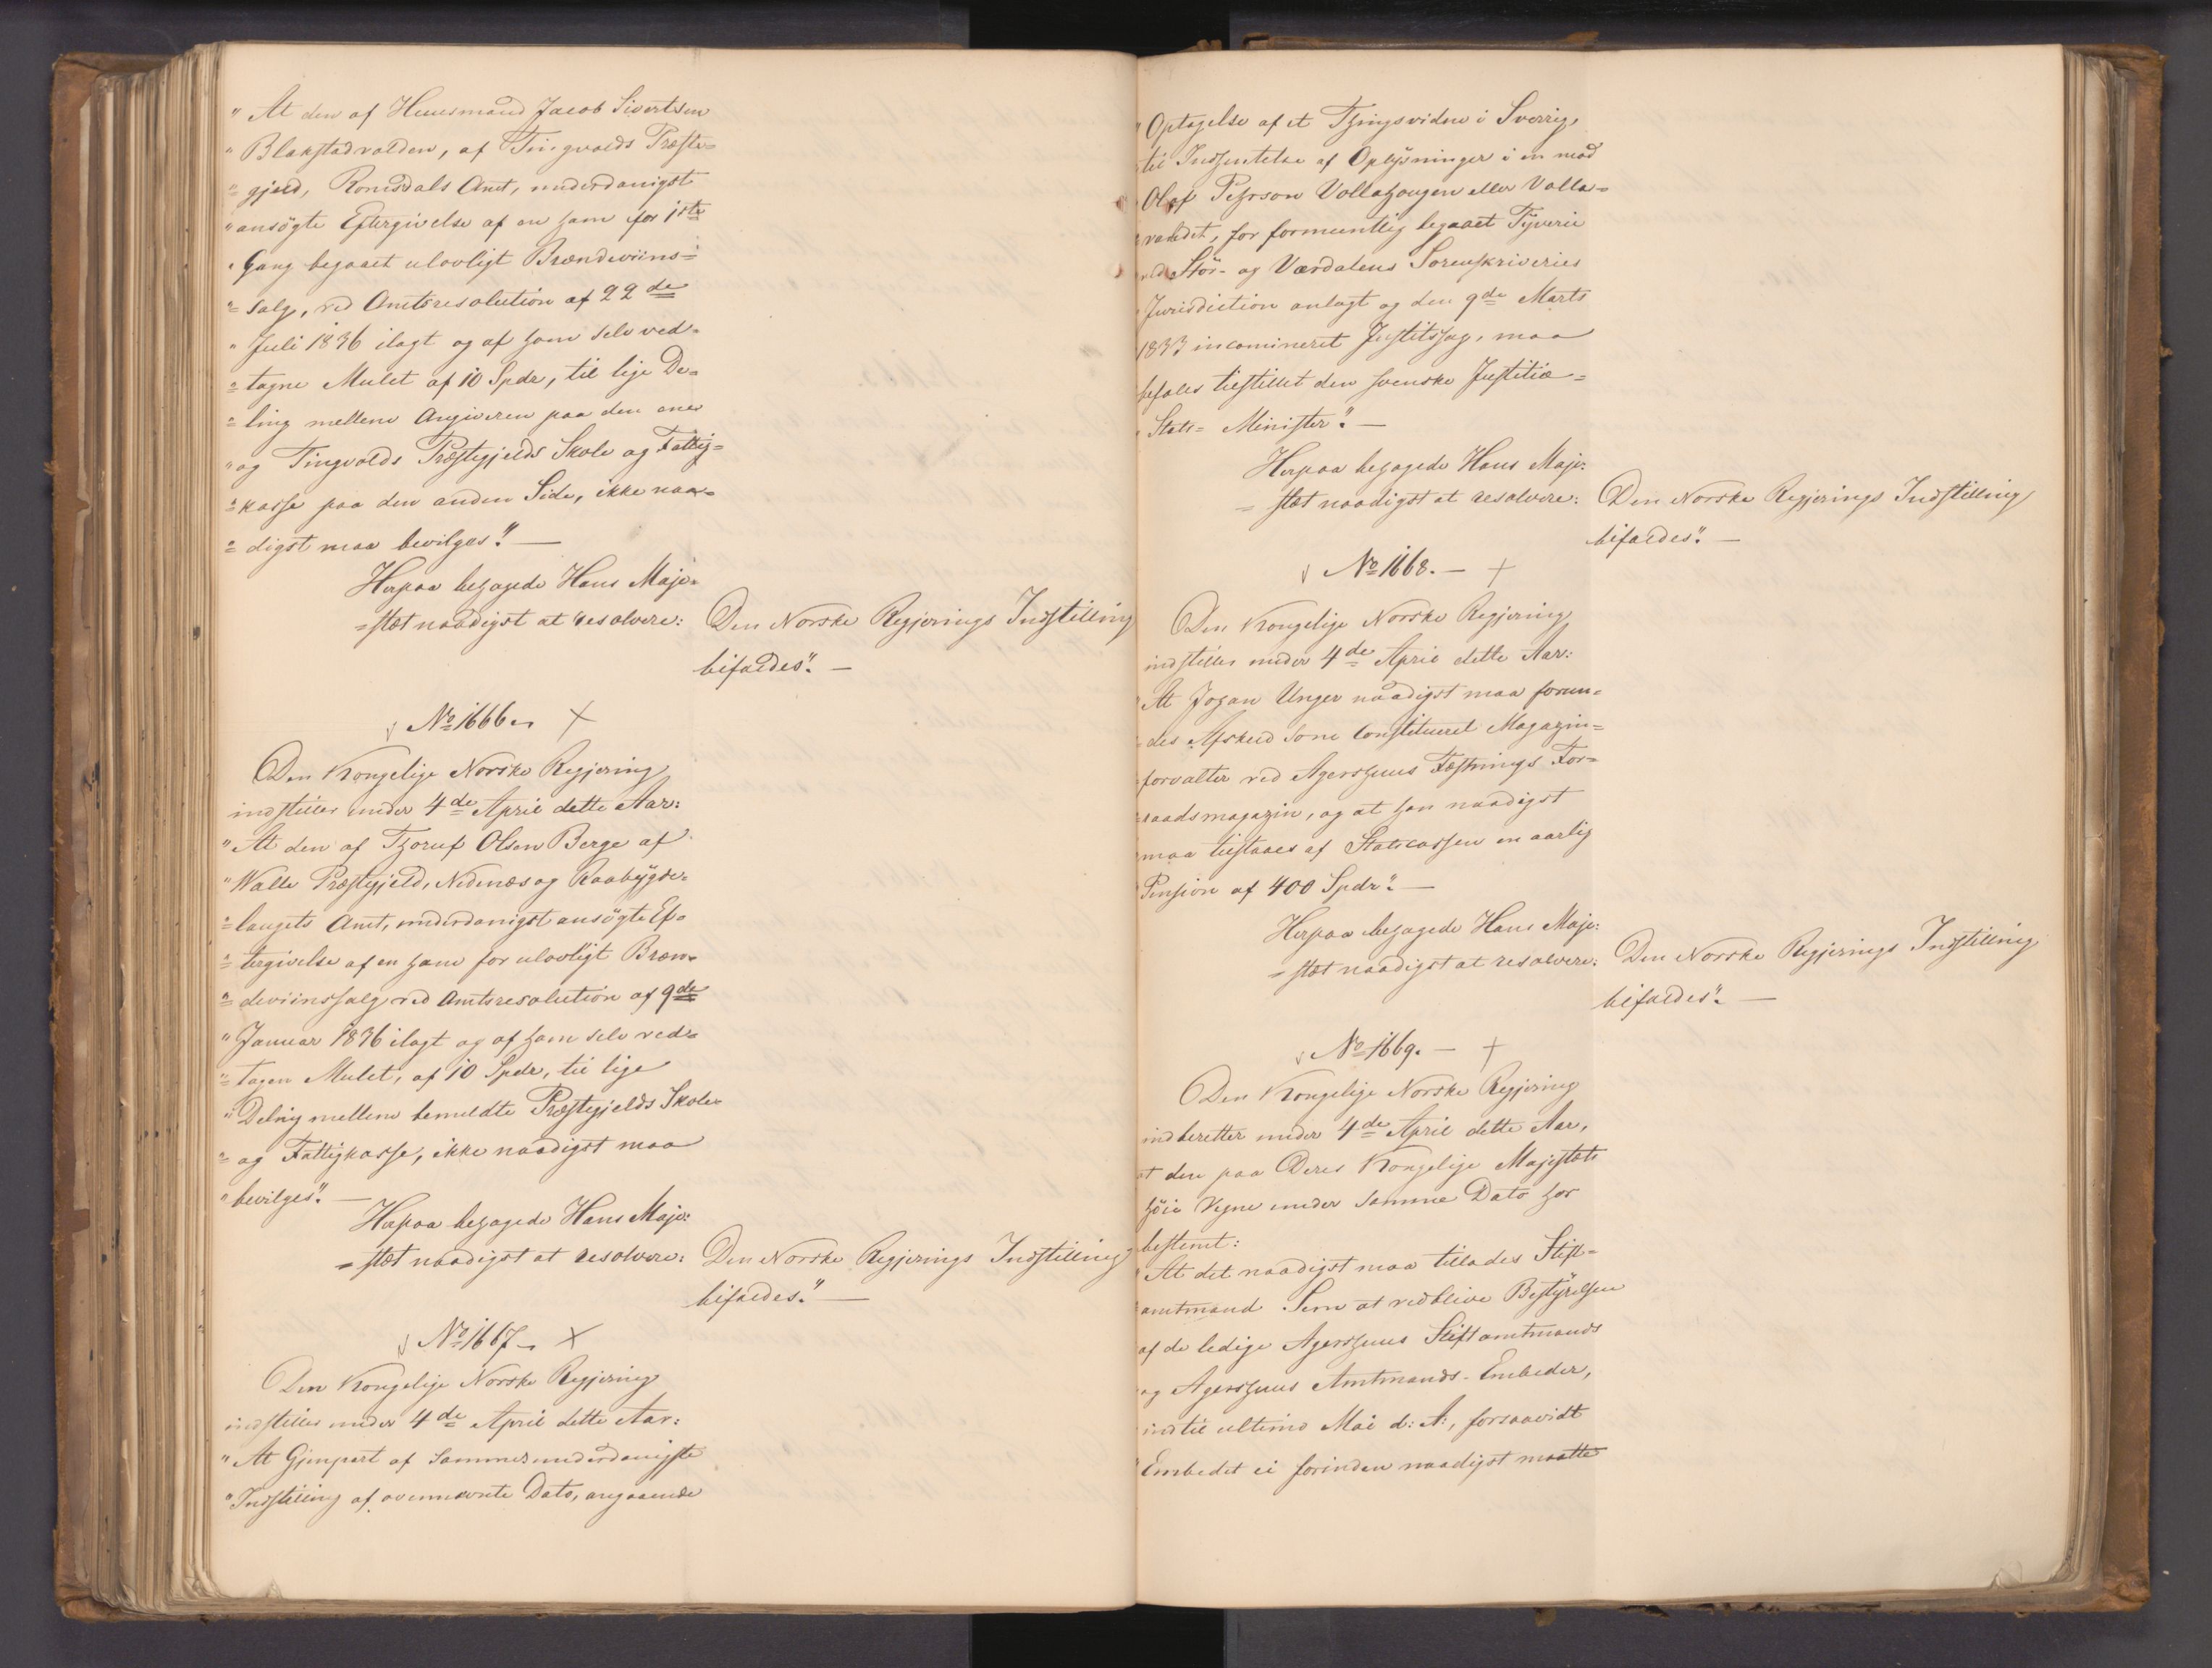 "At den af Huusmand Jacob Sivertsen
"Blakstadvalden, af Tingvolds Præste=
"=gjeld, Romsdals Amt, underdanigst
"ansögte Eftergivelse af en ham for 1ste
"Gang begaaet ulovligt Brændeviins=
"=salg, ved Amtsresolution af 22de
"Juli 1836 ilagt og af ham selv ved=
"=tagne Mulct af 10 Spdr, til lige De=
"=ling mellem Angiveren paa den ene
"og Tingvolds Præstegjelds Skole og Fattig=
"=kasse paa den anden Side, ikke naa=
"=digst maa bevilges". —
Herpaa behagede Hans Maje=
=stæt naadigst at resolvere: Den Norske Regjerings Indstilling
bifaldes". —
No 1666. ×
Den Kongelige Norske Regjering
indstiller under 4de April dette Aar:
"At den af Thoruf Olsen Berge af
"Walle Præstegjeld, Nedenæs og Raabygde=
"=laugets Amt, underdanigst ansögte Ef=
"=tergivelse af en ham for ulovligt Bræn=
"=deviinssalg ved Amtsresolution af 9de
"Januar 1836 ilagt og af ham selv ved=
"=tagen Mulct, af 10 Spdr, til lige
"Deling mellem bemeldte Præstegjelds Skole=
"=og Fattigkasse, ikke naadigst maa
"bevilges". —
Herpaa behagede Hans Maje=
=stæt naadigst at resolvere: Den Norske Regjerings Indstilling
bifaldes". —
No 1667. ×
Den Kongelige Norske Regjering
indstiller under 4de April dette Aar:
"At Gjenpart af sammes underdanigste
"Indstilling af ovennævnte Dato, angaaende
"Optagelse af et Thingsvidne i Sverrig,
"til Indhentelse af Oplysninger i en mod
"Olof Pehrson Vollahougen eller Valla=
"valdet, for formeentlig begaaet Tyverie
"ved Stör- og Værdalens Sorenskriveries
"Jurisdiction anlagt og den 9de Marts
"1833 incamineret Justitssag, maa
befales tilstillet den svenske Justitiæ=
"Stats=Minister". —
Herpaa behagede Hans Maje=
=stæt naadigst at resolvere: Den Norske Regjerings Indstilling
bifaldes". —
No 1668. — ×
Den Kongelige Norske Regjering
indstiller under 4de April dette Aar:
"At Johan Unger naadigst maa forun=
=des Afsked som constitueret Magazin=
=forvalter ved Agershuus Fæstnings For=
=raadsmagazin, og at han naadigst
maa tilstaaes af Statscassen en aarlig
"Pension af 400 Spdr". —
Herpaa behagede Hans Maje=
=stæt naadigst at resolvere: Den Norske Regjerings Indstilling
bifaldes". —
No 1669. — ×
Den Kongelige Norske Regjering
indberetter under 4de April dette Aar,
at den paa Deres Kongelige Majestæts
höie Vegne under samme Dato har
bestemt:
"At det naadigst maa tillades Stift=
amtmand Sem at vedblive Bestyrelsen
af de ledige Agershuus Stiftamtmands
og Agershuus Amtmands-Embeder,
indtil ultimo Mai d: A:, forsaavidt
"Embedet ei forinden naadigst maatte